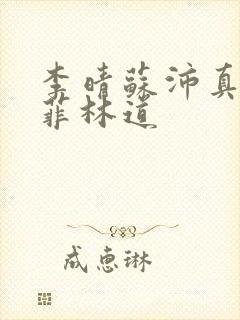 李晴蘇沛真
菲林道
成惠琳